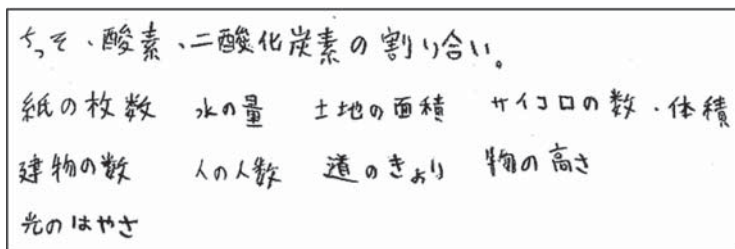 ちっそ、酸素、二酸化炭素の割り合い。
紙の枚数 水の量 土地の面積 サイコロの数・体積
建物の数 人の人数 道のきょり 物の高さ
光のはやさ